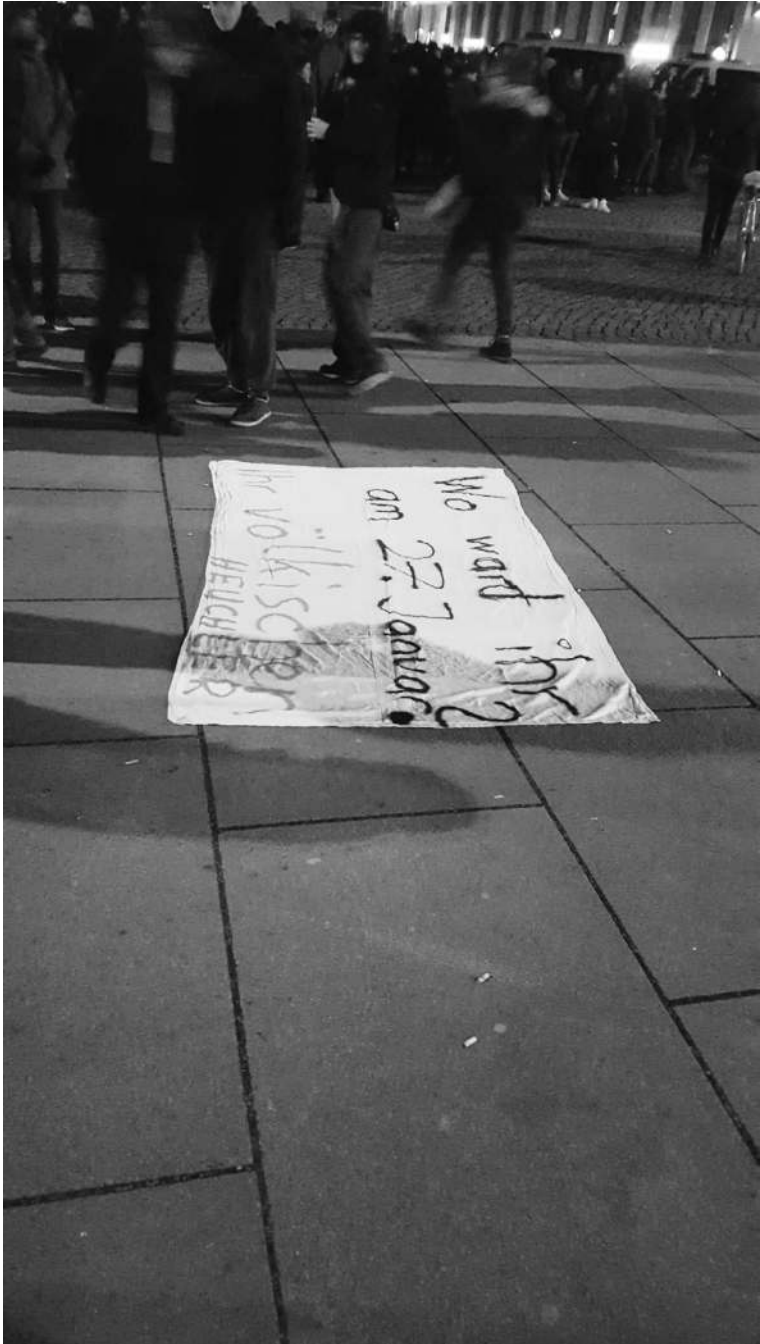 Wo ward ihr
am 27. Januar?
Ihr völkischen
HEUCHLER